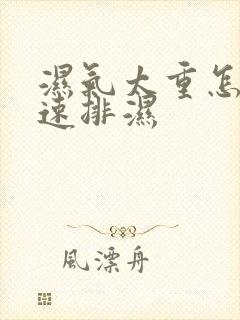 濕氣太重怎
速排濕
風漂舟